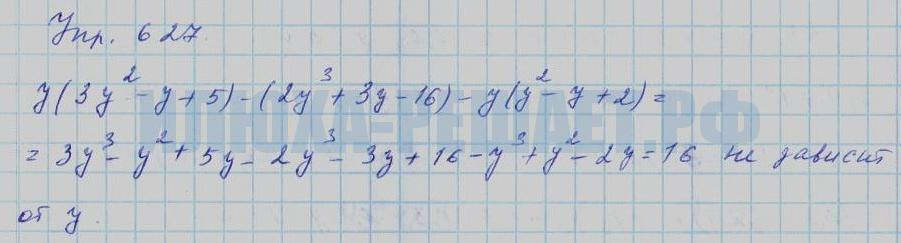 Упр. 627.
y(3y² - y + 5) - (2y³ + 3y - 16) - y(y² - y + 2) =
= 3y³ - y² + 5y - 2y³ - 3y + 16 - y³ + y² - 2y = 16 не зависит
от y.
КЛЮХА-РЕШАЕТ.РФ